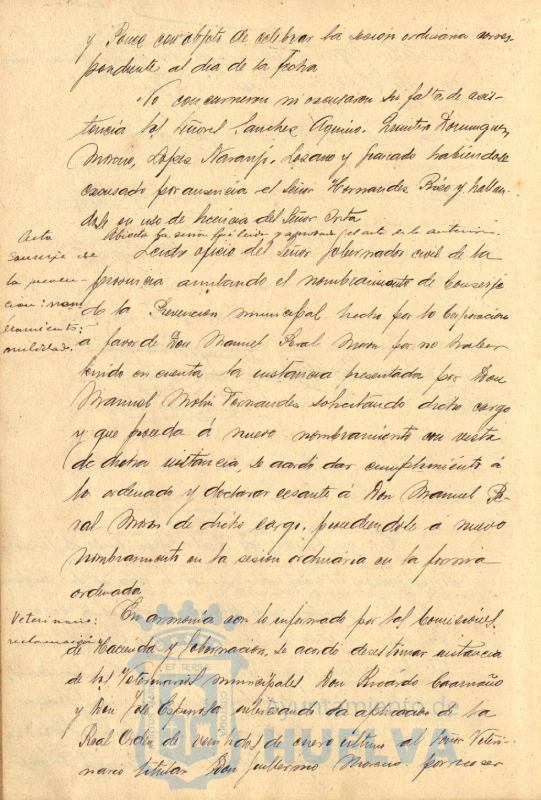 y Ponce con objeto de celebrar la sesion ordinaria corres-
pondiente al dia de la fecha
No concurrieron ni excusaron su falta de asis-
tencia los Señores Sanchez, Aquino, Dominguez,
Moreno, Lopez Naranjo, Lozano y Granado habiéndose
excusado por ausencia el Señor Hernandez Pozo y hallan-
dose en uso de licencia del Señor Orta
Abierta la sesion fué leida y aprobada el acta de la anterior.
Acta
Conserje de
la preven-
cion: nom
bramiento:
nulidad.
Leido oficio del Señor Gobernador civil de la
provincia anulando el nombramiento de Conserje
de la Prevencion municipal hecho por la Corporacion
a favor de Don Manuel Peral Moron por no haber
tenido en cuenta la instancia presentada por Don
Manuel Fernandez solicitando dicho cargo
y que proceda á nuevo nombramiento con vista
de dicha instancia, se acordó dar cumplimiento á
lo ordenado y declarar cesante á Don Manuel Pe-
ral Moron de dicho cargo, procediendose á nuevo
nombramiento en la sesion ordinaria en la forma
ordenada
Veterinario:
reclamación
En armonía con lo informado por las Comisiones
de Hacienda y Gobernacion, se acordó desestimar instancia
de los Veterinarios municipales Don Ricardo Caamaño
y Don José Espinosa interesando la aplicacion de la
Real Orden de veintidos de enero último al Señor Veteri-
nario titular Don Guillermo Moreno por no ser
ET TERRÆ
Ayuntamiento de
HUELVA